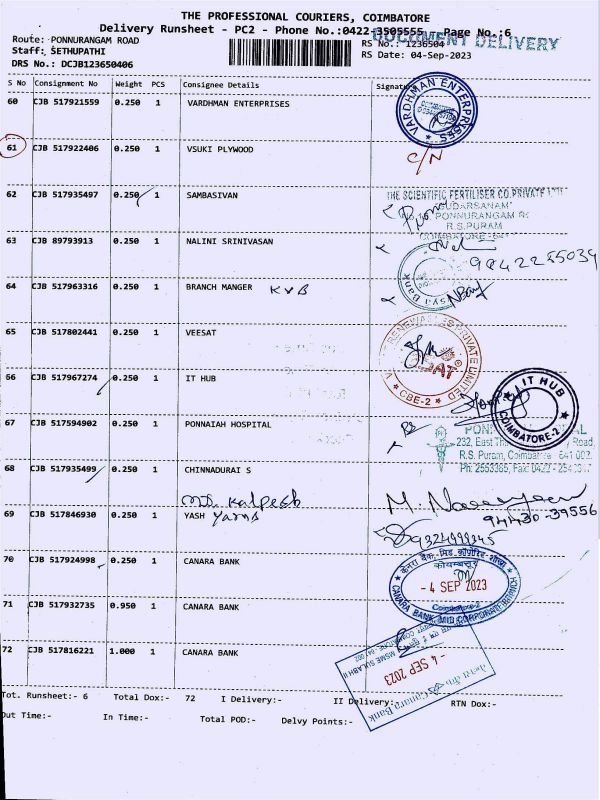 THE PROFESSIONAL COURIERS, COIMBATORE
Delivery Runsheet - PC2 - Phone No.:0422-3505555 Page No.:6
DOCUMENT DELIVERY
Route: PONNURANGAM ROAD RS No.: 1236504
Staff: SETHUPATHI RS Date: 04-Sep-2023
DRS No.: DCJB123650406
S No Consignment No Weight PCS Consignee Details Signature
60 CJB 517921559 0.250 1 VARDHMAN ENTERPRISES
VARDHMAN ENTERPRISES
61 CJB 517922406 0.250 1 VSUKI PLYWOOD C/N
62 CJB 517935497 0.250 1 SAMBASIVAN
THE SCIENTIFIC FERTILISER CO.PRIVATE
SUDARSANAM
PONNURANGAM
R.S.PURAM
63 CJB 89793913 0.250 1 NALINI SRINIVASAN
9842255034
64 CJB 517963316 0.250 1 BRANCH MANGER KVB
Bank
65 CJB 517802441 0.250 1 VEESAT
RENEWABLES PRIVATE LIMITED
CBE-2
66 CJB 517967274 0.250 1 IT HUB
IT HUB
COIMBATORE-2
67 CJB 517594902 0.250 1 PONNAIAH HOSPITAL
232, East Road,
R.S. Puram, Coimbatore 641 002.
Ph: 2553365, Fax: 0422 -
68 CJB 517935499 0.250 1 CHINNADURAI S
Kalpesh
94430-39556
69 CJB 517846930 0.250 1 YASH Yarns
70 CJB 517924998 0.250 1 CANARA BANK
कोयम्बत्तूर
- 4 SEP 2023
Coimbatore-2
CANARA BANK, MID CORPORATE BRANCH
71 CJB 517932735 0.950 1 CANARA BANK
72 CJB 517816221 1.000 1 CANARA BANK
MSME SULABH II
- 4 SEP 2023
Canara Bank
Tot. Runsheet:- 6 Total Dox:- 72 I Delivery:- II Delivery:- RTN Dox:-
Out Time:- In Time:- Total POD:- Delvy Points:-